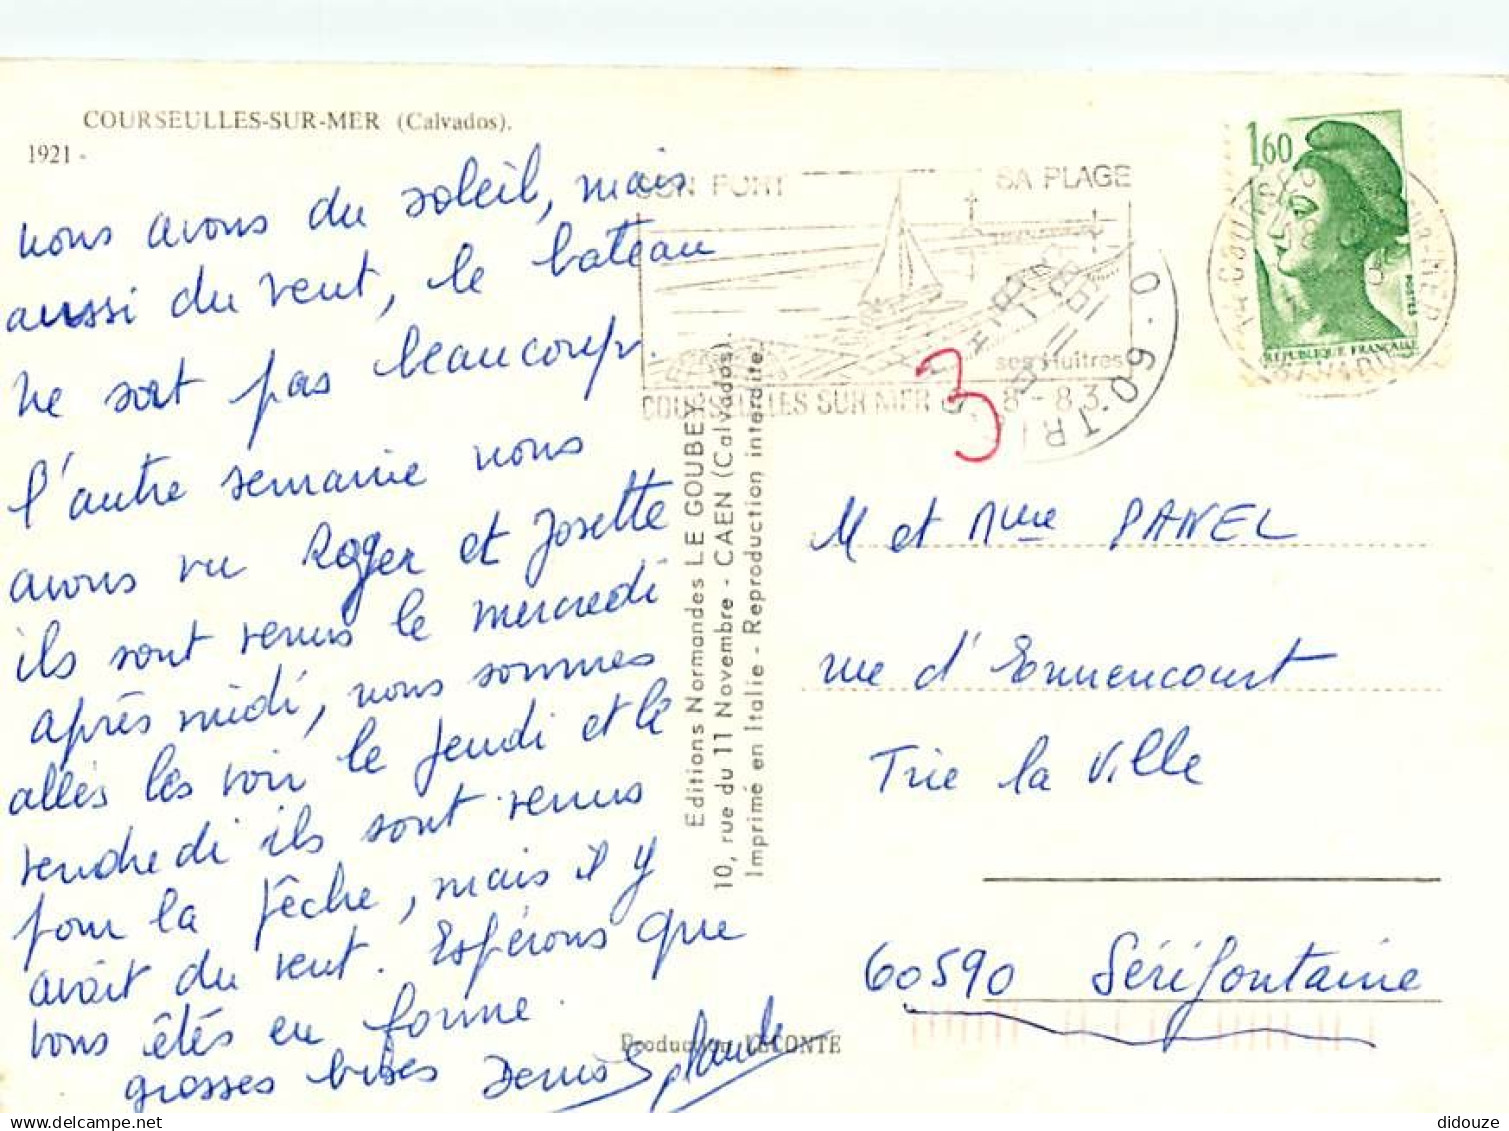 COURSEULLES-SUR-MER (Calvados).
1921 -
nous avons du soleil, mais
aussi du vent, le bateau
ne sort pas beaucoup.
l'autre semaine nous
avons vu Roger et Josette
ils sont venus le mercredi
après midi, nous sommes
allés les voir le jeudi et le
vendredi ils sont venus
pour la pêche, mais il y
avait du vent. Espérons que
vous êtés en forme.
grosses bises Denis
Editions Normandes LE GOUBEY
10, rue du 11 Novembre - CAEN (Calvados).
Imprimé en Italie - Reproduction interdite.
Production LECONTE
SON PORT SA PLAGE
ses Huîtres
COURSEULLES SUR MER
8-83
3
1,60
POSTES
REPUBLIQUE FRANÇAISE
M et Mme PANEL
rue d'Ennencourt
Trie la Ville
60590 Sérifontaine
didouze